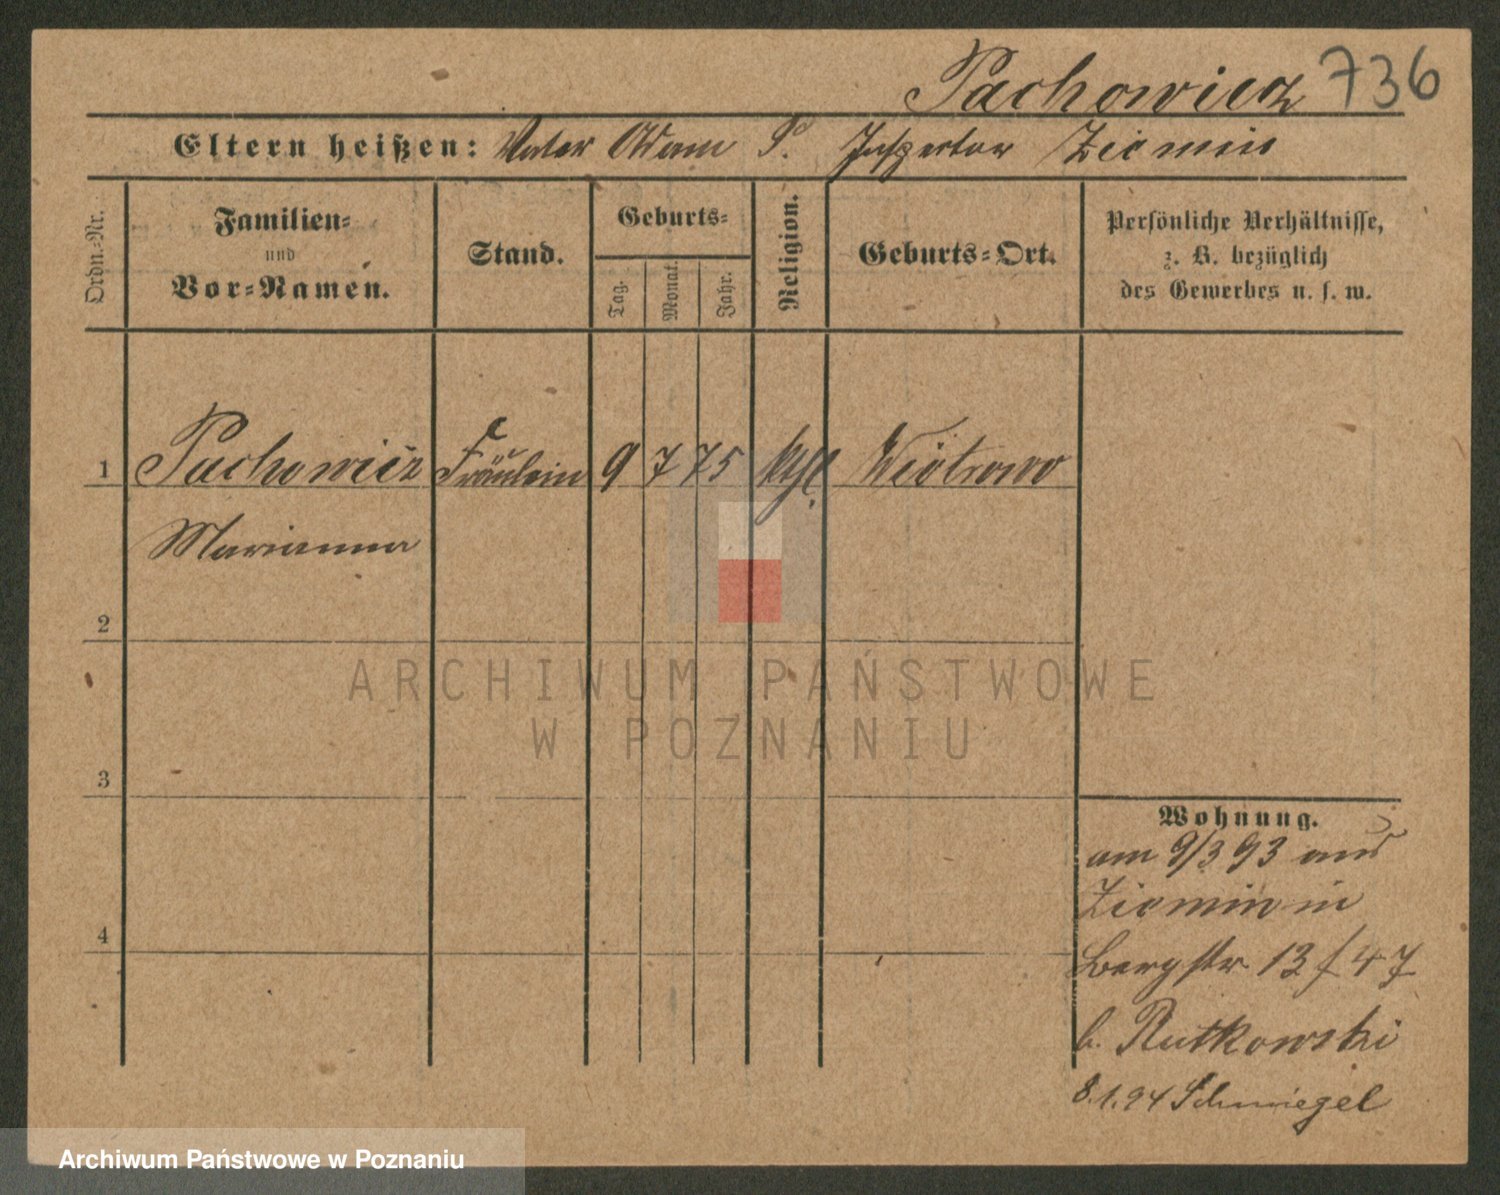 Pachowicz 736
Eltern heißen: Vater Adam P. Inspector Ziemin
Ordn.-Nr.
Familien-
und
Vor-Namen.
Stand.
Geburts-
Tag.
Monat.
Jahr.
Religion.
Geburts-Ort.
Persönliche Verhältnisse,
z. B. bezüglich
des Gewerbes u. s. w.
1 Pachowicz Fräulein 9 7 75 kth.
Marianna
2
3
4
Wohnung.
am 9/3 93 aus
Ziemin in
Bergstr 13 / 47
b. Rutkowski
8.1.94 Schmiegel
ARCHIWUM PAŃSTWOWE
W POZNANIU
Archiwum Państwowe w Poznaniu